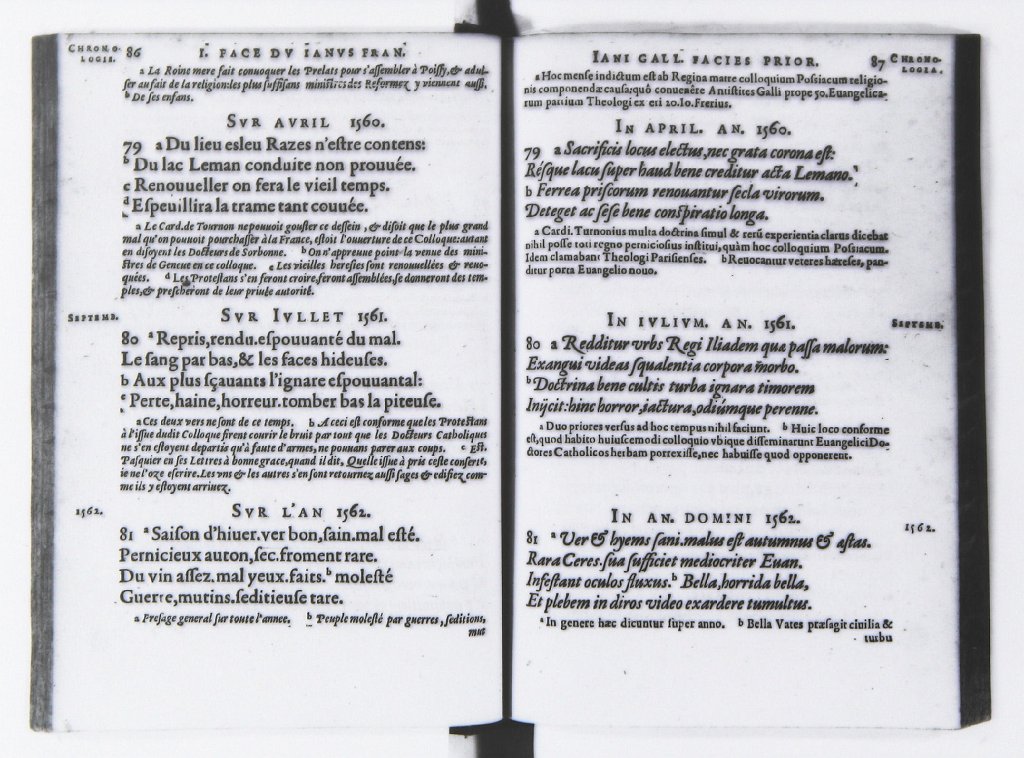 CHRONO-
LOGIE.
86 I. FACE DV IANVS FRAN.
a La Roine mere fait conuoquer les Prelats pour s'assembler à Poissy, & adui-
ser au fait de la religion: les plus suffisans ministres des Reformez y viennent aussi.
b De ses enfans.
SVR AVRIL 1560.
79 a Du lieu esleu Razes n'estre contens:
b Du lac Leman conduite non prouuée.
c Renouueller on fera le vieil temps.
d Espeuillira la trame tant couuée.
a Le Card. de Tournon ne pouuoit gouster ce dessein, & disoit que le plus grand
mal qu'on pouuoit pourchasser à la France, estoit l'ouuerture de ce Colloque: autant
en disoyent les Docteurs de Sorbonne. b On n'appreuue point la venue des mini-
stres de Geneue en ce colloque. c Les vieilles heresies sont renouuellées & reuo-
quées. d Les Protestans s'en feront croire, feront assemblées, se donneront des tem-
ples, & prescheront de leur priuée autorité.
SEPTEMB.
SVR IVLLET 1561.
80 a Repris, rendu. espouuanté du mal.
Le sang par bas, & les faces hideuses.
b Aux plus sçauants l'ignare espouuantal:
c Perte, haine, horreur. tomber bas la piteuse.
a Ces deux vers ne sont de ce temps. b A ceci est conforme que les Protestans
à l'issue dudit Colloque firent courir le bruit par tout que les Docteurs Catholiques
ne s'en estoyent departis qu'à faute d'armes, ne pouuans parer aux coups. c Est.
Pasquier en ses Lettres à bonne grace, quand il dit, Quelle issue à pris ceste conferẽce,
ie ne l'oze escrire. Les vns & les autres s'en sont retournez aussi sages & edifiez com-
me ils y estoyent arriuez.
1562.
SVR L'AN 1562.
81 a Saison d'hiuer. ver bon, sain. mal esté.
Pernicieux auton, sec. froment rare.
Du vin assez. mal yeux. faits. b molesté
Guerre, mutins. seditieuse tare.
a Presage general sur toute l'annee. b Peuple molesté par guerres, seditions,
mut
IANI GALL. FACIES PRIOR. 87
CHRONO-
LOGIA.
a Hoc mense indictum est ab Regina matre colloquium Possiacum religio-
nis componendæ causa: quò conuenêre Antistites Galli prope 50. Euangelica-
rum partium Theologi ex eri 20. Io. Frerius.
IN APRIL. AN. 1560.
79 a Sacrificis locus electus, nec grata corona est:
Résque lacu super haud bene creditur acta Lemano.
b Ferrea priscorum renouantur secla virorum.
Deteget ac sese bene conspiratio longa.
a Cardi. Turnonius multa doctrina simul & rerũ experientia clarus dicebat
nihil posse toti regno perniciosius institui, quàm hoc colloquium Possiacum.
Idem clamabant Theologi Parisienses. b Reuocantur veteres hæreses, pan-
ditur porta Euangelio nouo.
IN IVLIVM. AN. 1561.
SEPTEMB.
80 a Redditur vrbs Regi Iliadem qua passa malorum:
Exangui videas squalentia corpora morbo.
b Doctrina bene cultis turba ignara timorem
Inijcit: hinc horror, iactura, odiúmque perenne.
a Duo priores versus ad hoc tempus nihil faciunt. b Huic loco conforme
est, quod habito huiuscemodi colloquio vbique disseminarunt Euangelici Do-
ctores Catholicos herbam porrexisse, nec habuisse quod opponerent.
IN AN. DOMINI 1562.
1562.
81 a Ver & hyems sani. malus est autumnus & æstas.
Rara Ceres. sua sufficiet mediocriter Euan.
Infestant oculos fluxus. b Bella, horrida bella,
Et plebem in diros video exardere tumultus.
a In genere hæc dicuntur super anno. b Bella Vates præsagit ciuilia &
turbu